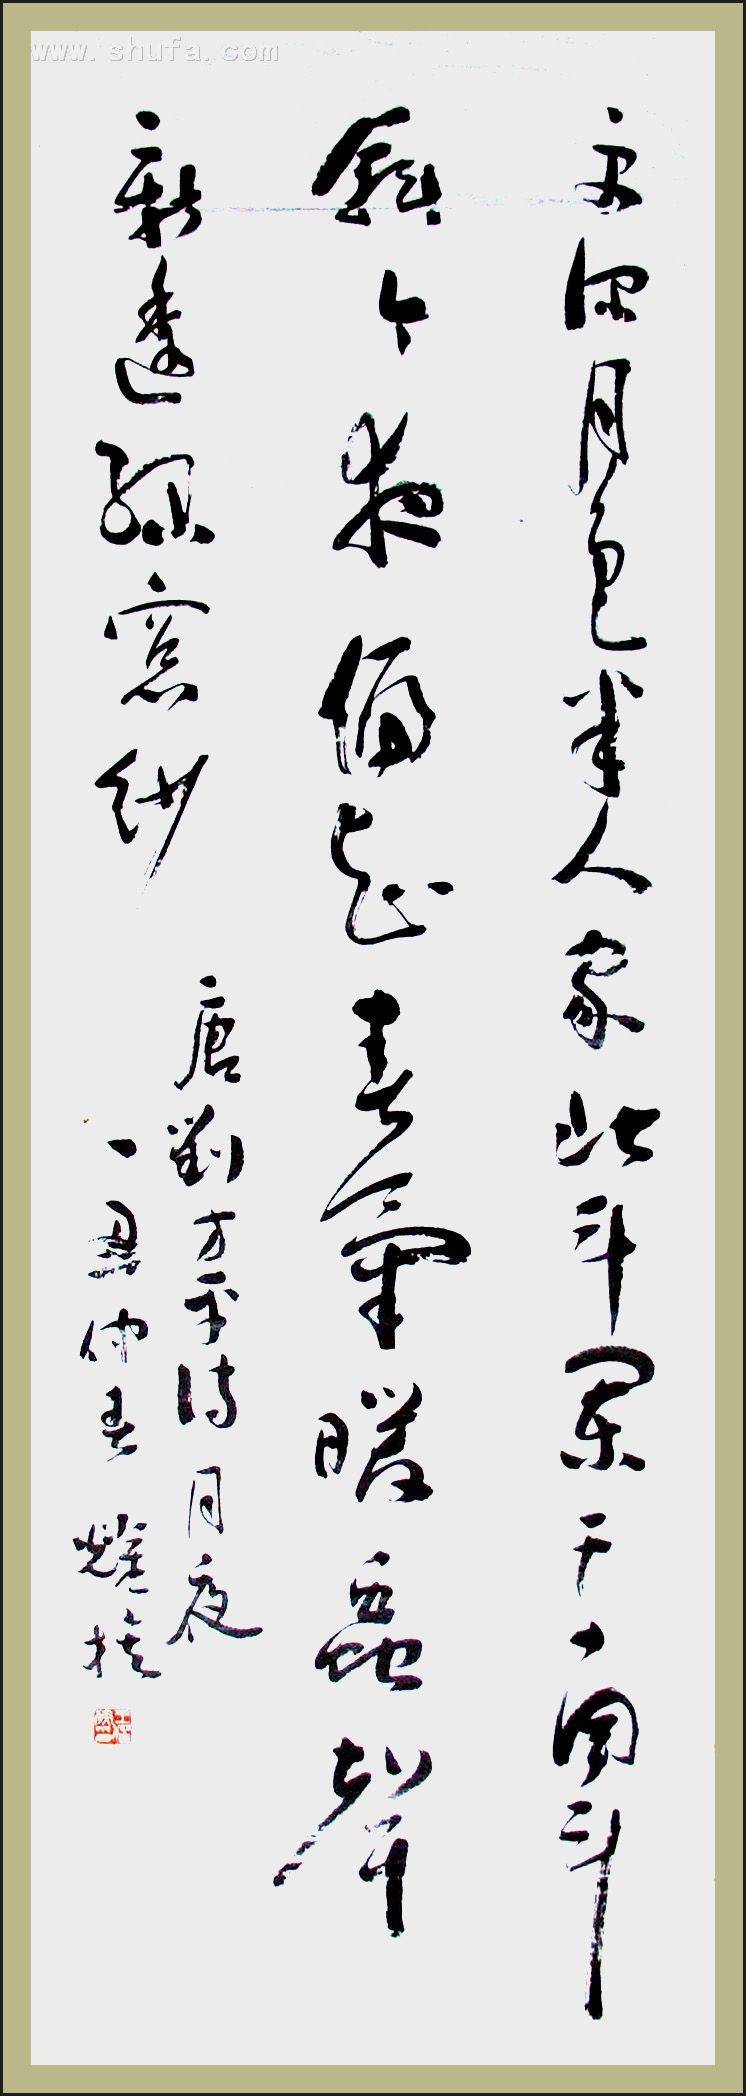 www.shufa.com
更深月色半人家北斗闌干南斗
斜今夜偏知春氣暖蟲聲
新透綠窗紗
唐劉方平詩月夜
丑仲春